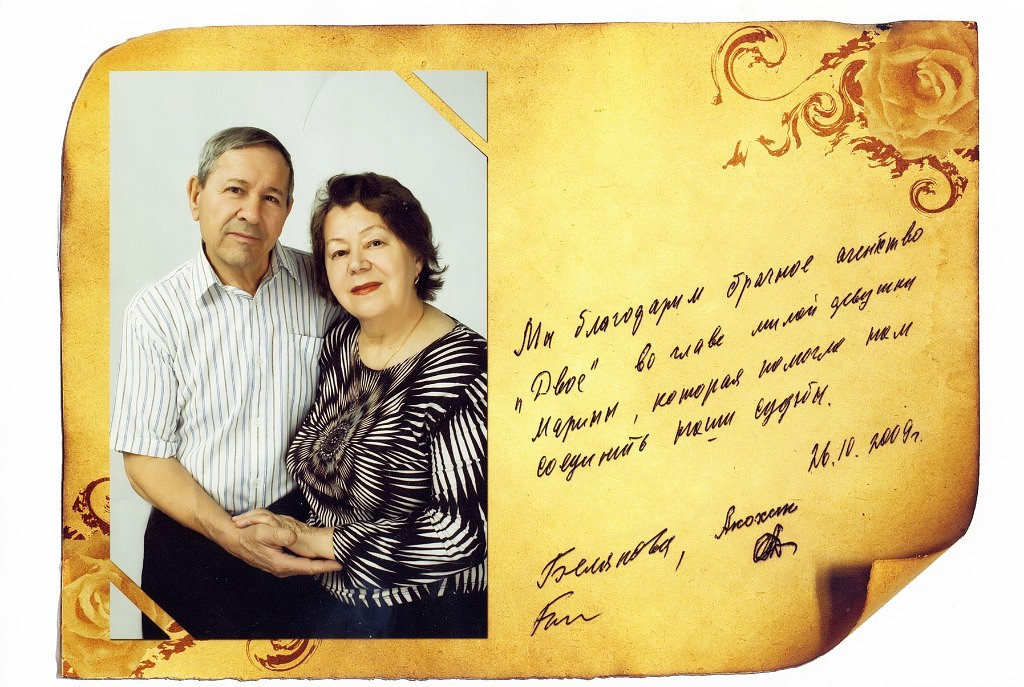 Мы благодарим брачное агентство
„Двое" во главе милой девушки
Марины, которая помогла нам
соединить наши судьбы.
26.10.2009г.
Белякова, Анохин